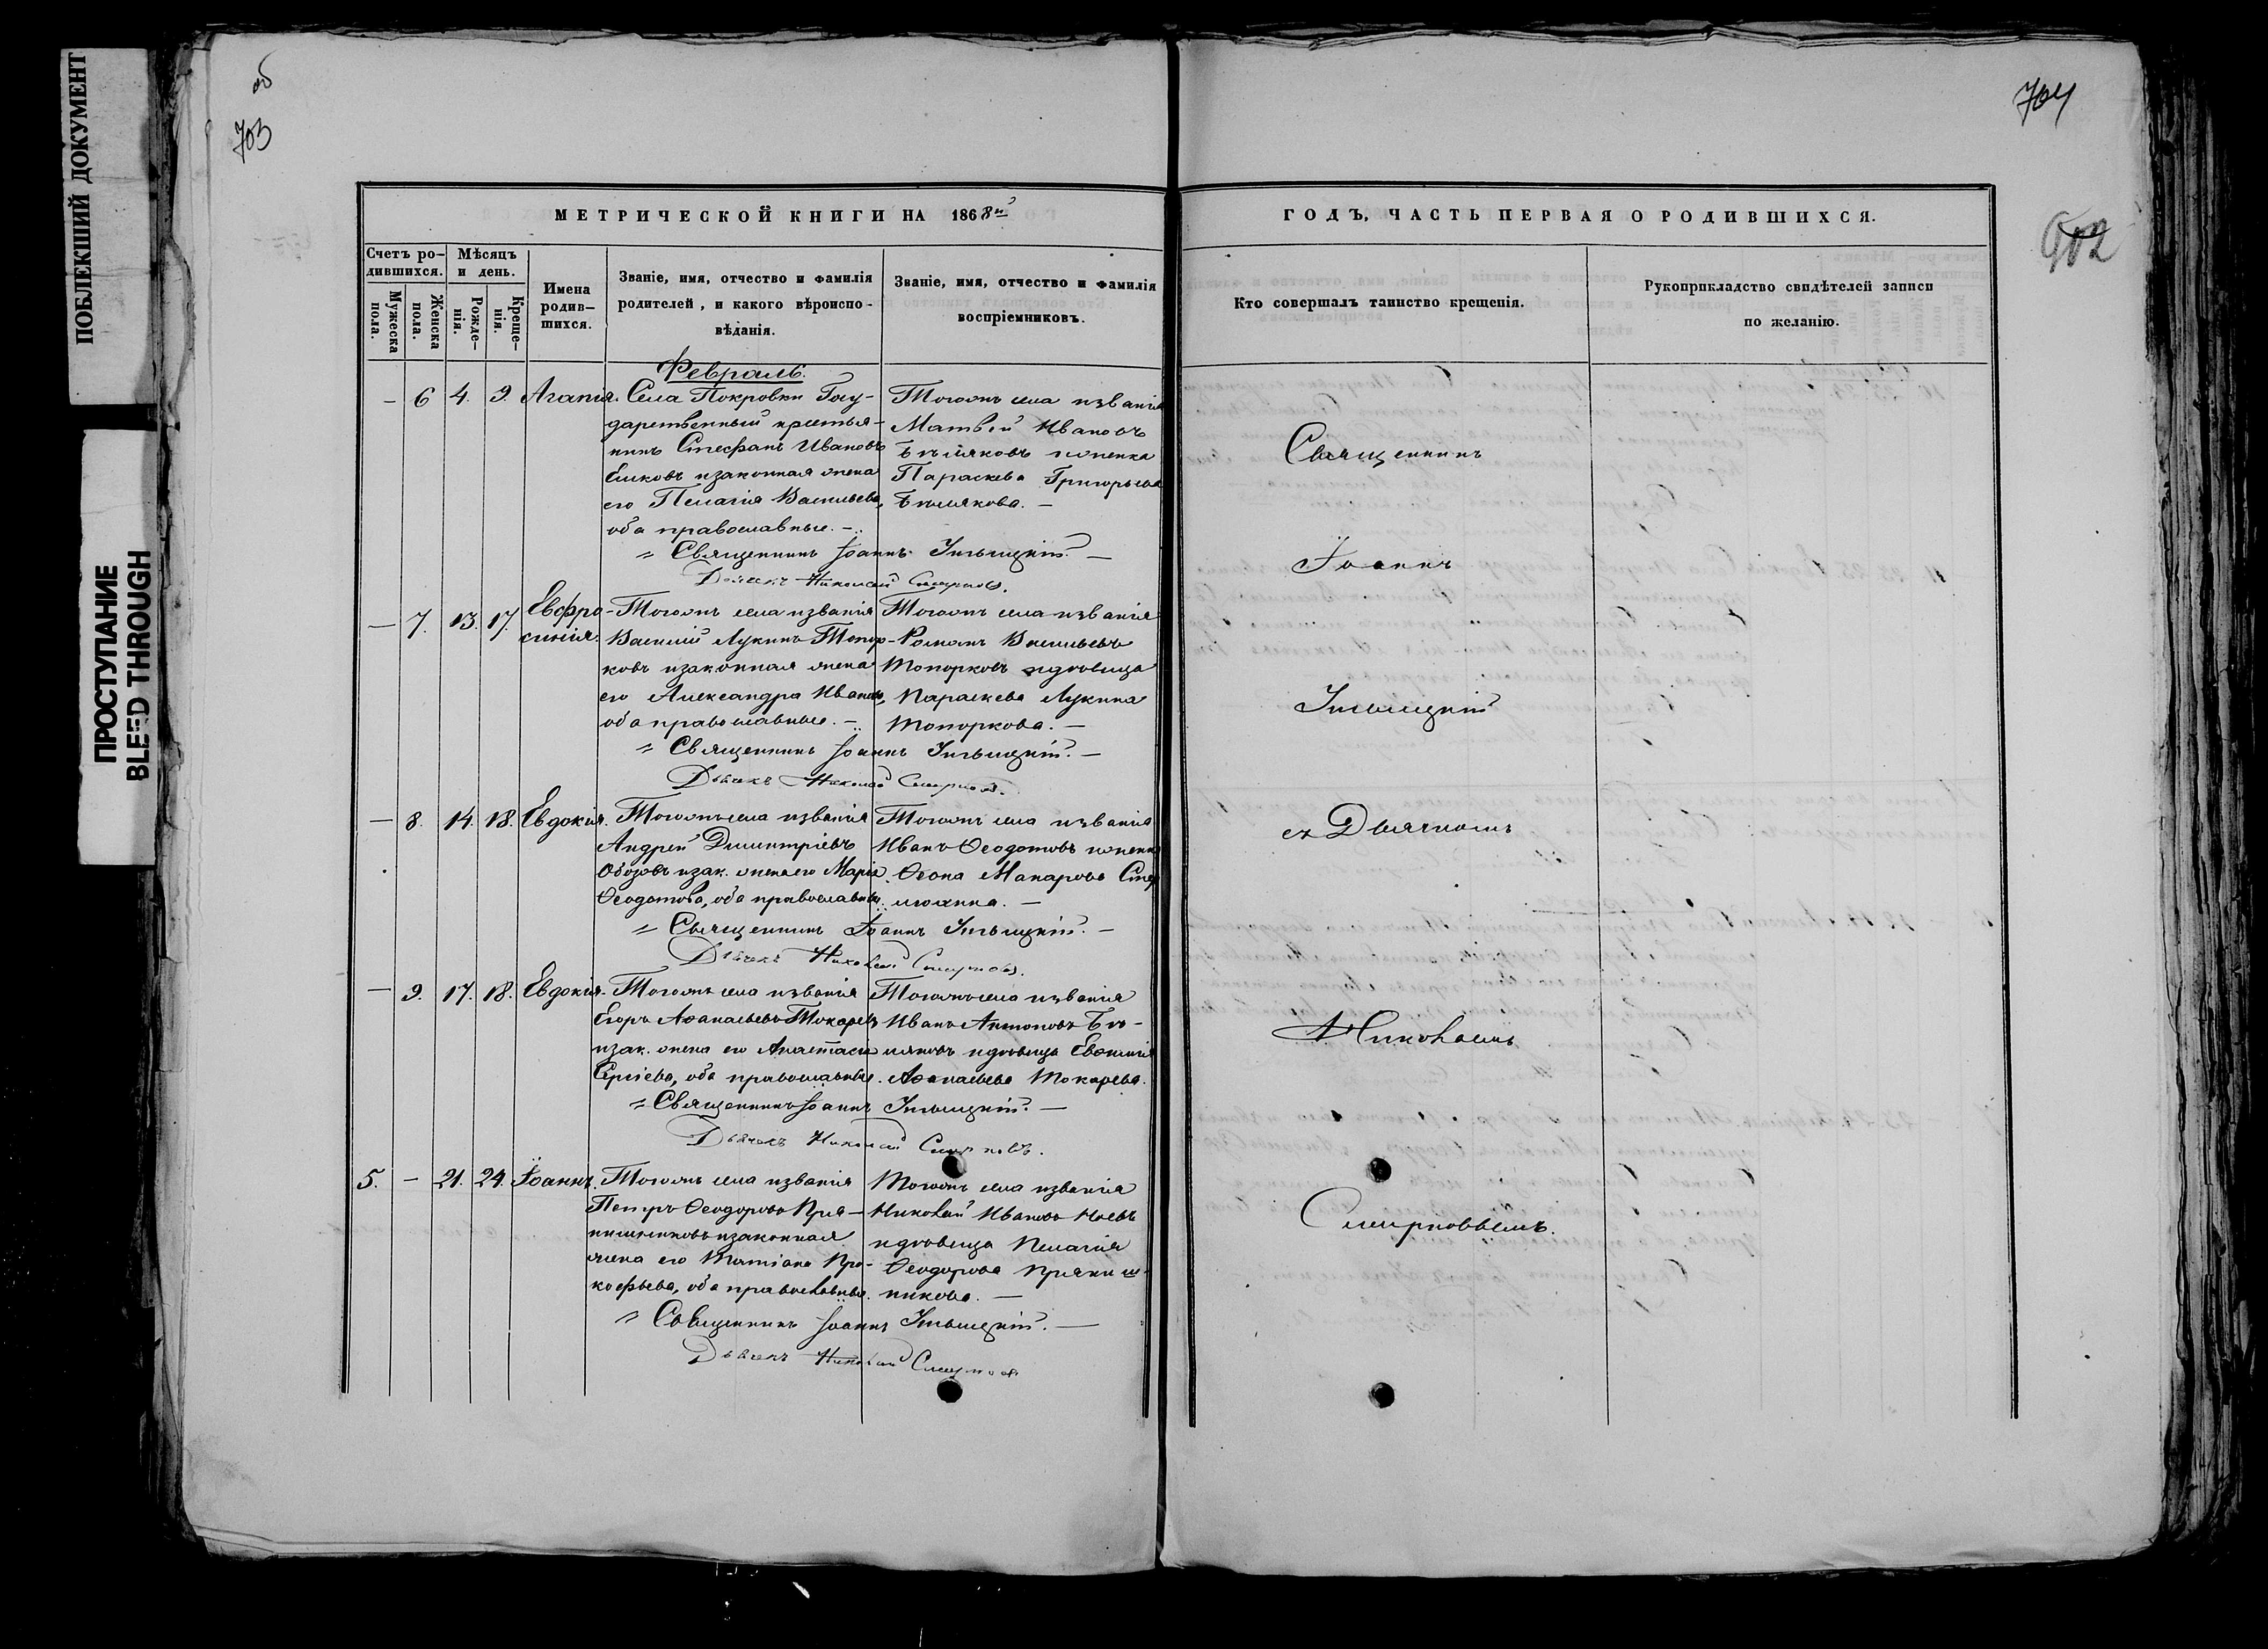 ПОБЛЕКШИЙ ДОКУМЕНТ
ПРОСТУПАНИЕ
BLEED THROUGH
об
703
704
502
МЕТРИЧЕСКОЙ КНИГИ НА 1868й
ГОДЪ, ЧАСТЬ ПЕРВАЯ О РОДИВШИХСЯ.
Счетъ ро-
дившихся.
Мужеска
пола.
Женска
пола.
Мѣсяцъ
и день.
Рожде-
нія.
Креще-
нія.
Имена
родив-
шихся.
Званіе, имя, отчество и фамилія
родителей, и какого вѣроиспо-
вѣданія.
Званіе, имя, отчество и фамилія
воспріемниковъ.
Кто совершалъ таинство крещенія.
Рукоприкладство свидѣтелей записи
по желанію.
Февраль.
— 6 4. 9. Агапія.
Села Покровки Госу-
дарственный крестья-
нинъ Стефанъ Ивановъ
изаконная жена
его Пелагія Васильева,
оба православные. —
Тогожъ села изванія
Матвей Ивановъ
Бѣляковъ иженка
Параскева Григорьева
Бѣлякова. —
Священникъ Іоаннъ —
Дьячекъ Николай Смирновъ.
— 7. 13. 17. Евфро-
синія.
Тогожъ села изванія
Василій Лукинъ Топор-
ковъ изаконная жена
его Александра Иванова,
оба православные. —
Тогожъ села изванія
Романъ Васильевъ
Топорковъ идѣвица
Параскева Лукина
Топоркова. —
Священникъ Іоаннъ —
Дьячекъ Николай Смирновъ.
— 8. 14. 18. Евдокія.
Тогожъ села изванія
Андрей Димитріевъ
Обозовъ изак. жена его Марія
Ѳеодотова, оба православные.
Тогожъ села изванія
Иванъ Ѳеодотовъ иженка
Макарова
—
Священникъ Іоаннъ —
Дьячекъ Николай Смирновъ.
— 9. 17. 18. Евдокія.
Тогожъ села изванія
Егоръ Аѳанасьевъ Токаревъ
изак. жена его Анастасія
Сергіева, оба православные.
Тогожъ села изванія
Иванъ Антоновъ Бѣ-
ляковъ идѣвица Евѳимія
Аѳанасьева Токарева.
Священникъ Іоаннъ —
Дьячекъ Николай Смирновъ.
5. — 21. 24. Іоаннъ.
Тогожъ села изванія
Петръ Ѳеодоровъ Пря-
нишниковъ изаконная
жена его Татіана Про-
кофьева, оба православные.
Тогожъ села изванія
Николай Ивановъ
идѣвица Пелагія
Ѳеодорова Пряниш-
никова. —
Священникъ Іоаннъ —
Дьячекъ Николай Смирновъ
Священникъ
Іоаннъ
съ Дьячкомъ
Николаемъ
Смирновымъ.